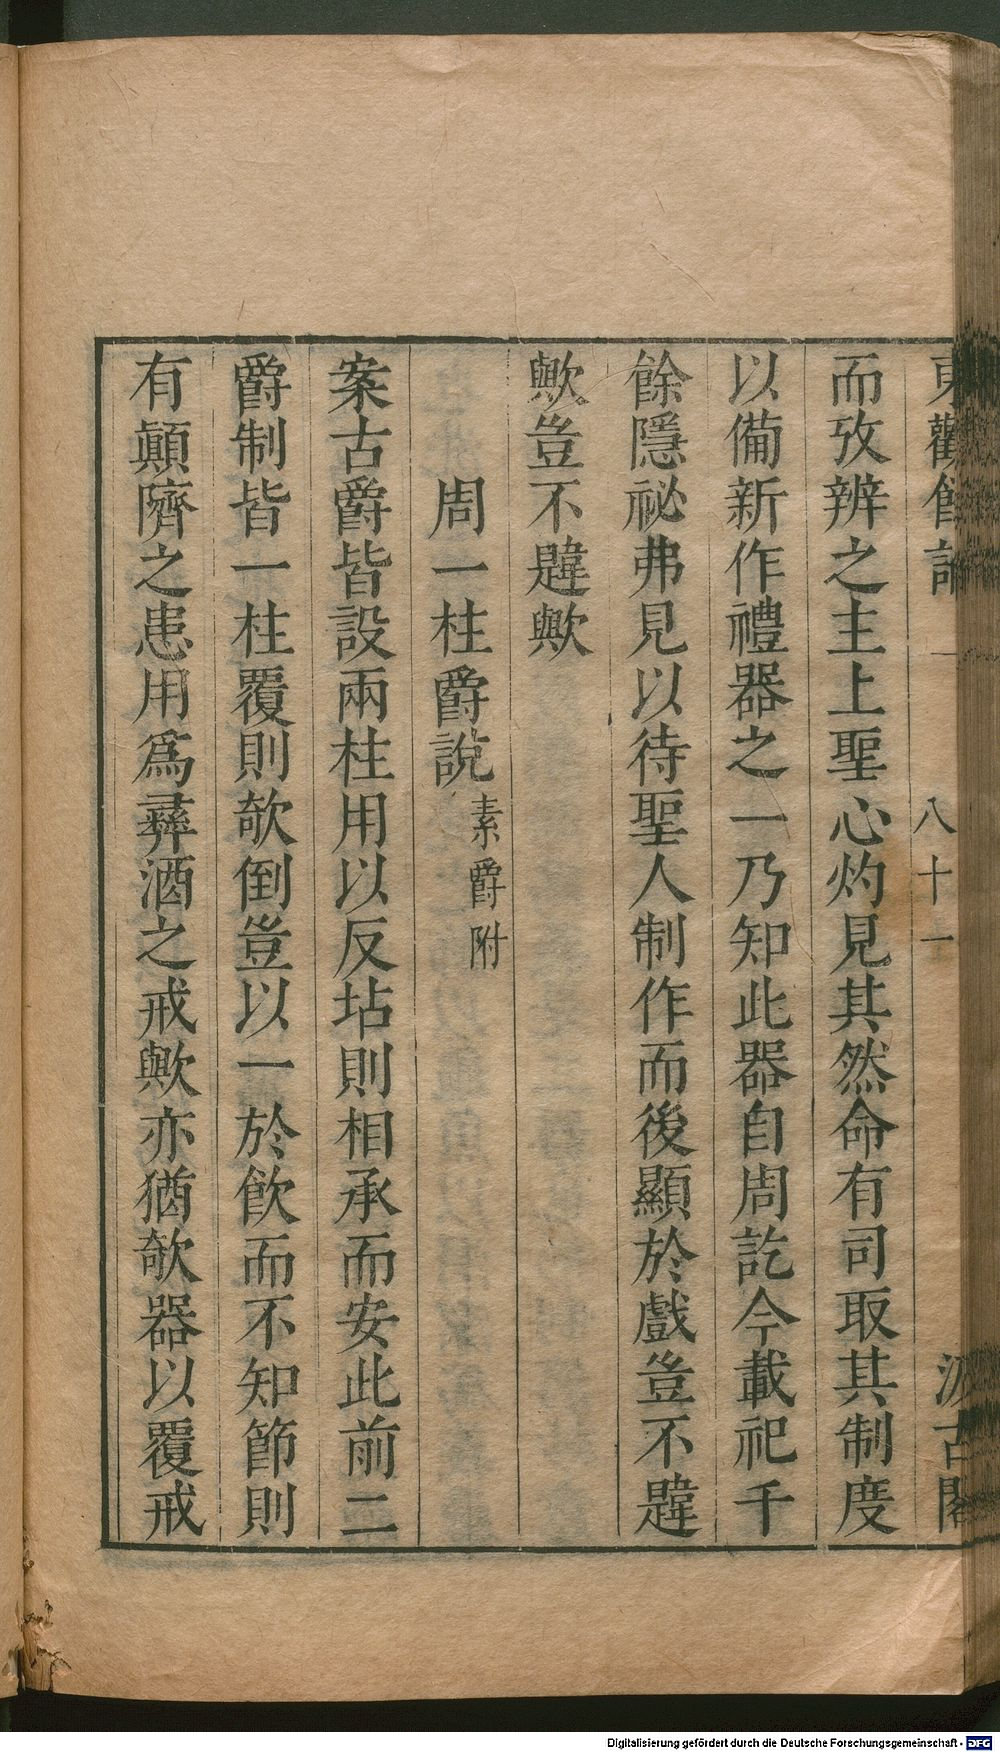 東觀餘論
八十一
汲古閣
而攷辨之主上聖心灼見其然命有司取其制度
以備新作禮器之一乃知此器自周訖今載祀千
餘隱祕弗見以待聖人制作而後顯於戲豈不韙
歟豈不韙歟
周一柱爵說素爵附
案古爵皆設兩柱用以反坫則相承而安此前二
爵制皆一柱覆則欹倒豈以一於飲而不知節則
有顚隮之患用爲彞酒之戒歟亦猶欹器以覆戒
Digitalisierung gefördert durch die Deutsche Forschungsgemeinschaft - DFG